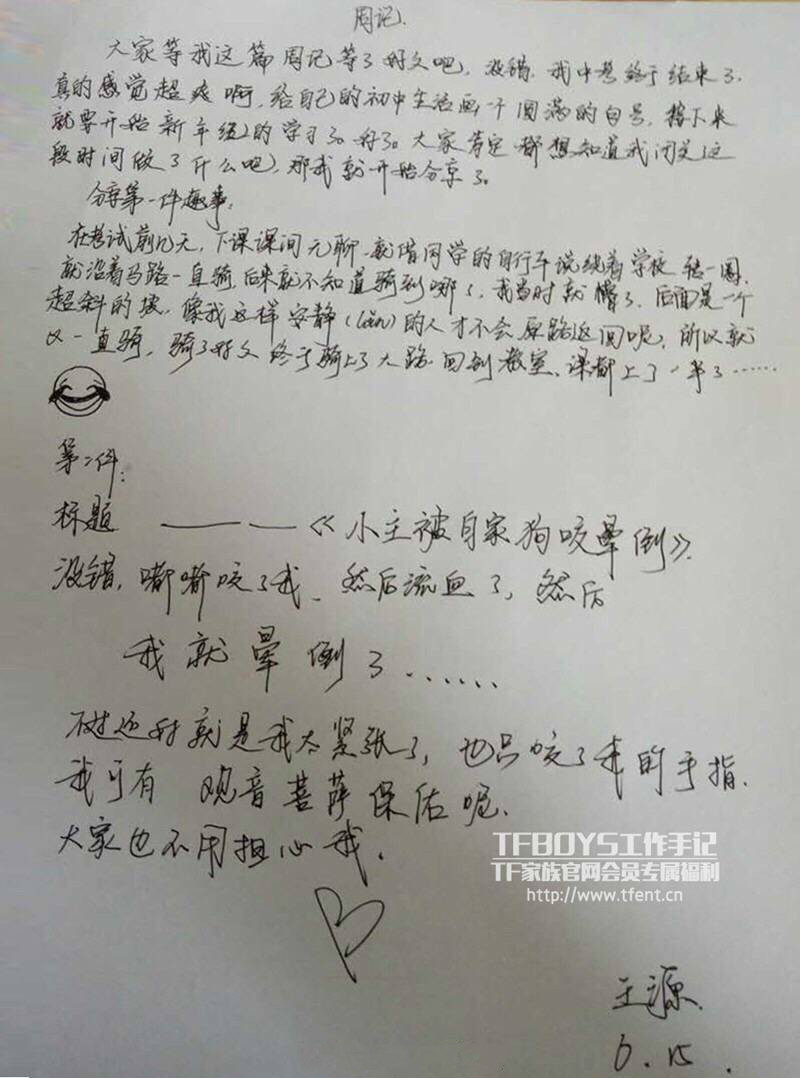 周记.
大家等我这篇周记等了好久吧,没错,我中考终于结束了.
真的感觉超爽啊,给自己的初中生活画一个圆满的句号,接下来
就要开始新年级的学习了。好了。大家肯定都想知道我闭关这
段时间做了什么吧,那我就开始分享了。
分享第一件趣事:
在考试前几天,下课课间无聊,就借同学的自行车说绕着学校转一圈,
就沿着马路一直骑,后来就不知道骑到哪了,我当时就懵了,后面是一个
超斜的坡,像我这样安静(lǎn)的人才不会原路返回呢,所以就
又一直骑,骑了好久终于骑上了大路.回到教室、课都上了一半了……
第二件:
标题 ———《小主被自家狗咬晕倒》.
没错,嘟嘟咬了我、然后流血了,然后
我就晕倒了......
不过还好就是我太紧张了,也只咬了我的手指.
我可有 观音菩萨保佑呢、
大家也不用担心我.
TFBOYS工作手记
TF家族官网会员专属福利
http://www.tfent.cn
王源.
6.15.